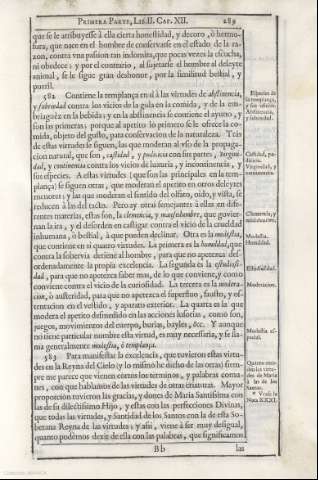 PRIMERA PARTE, LIB. II. CAP. XII. 289
que se le atribuyesse à ella cierta honestidad, y decoro, ò hermo-
sura, que nace en el hombre de conservarse en el estado de la ra-
zon, contra vna passion tan indomita, que pocas vezes la escucha,
ni obedece: y por el contrario, al sujetarse el hombre al deleyte
animal, se le sigue gran deshonor, por la similitud bestial, y
pueril.
582 Contiene la templança en sì à las virtudes de abstinencia,
y sobriedad contra los vicios de la gula en la comida, y de la em-
briaguèz en la bebida: y en la abstinencia se contiene el ayuno, y
son las primeras; porque al apetito lo primero se le ofrece la co-
mida, objeto del gusto, para conservacion de la naturaleza. Tras
de estas virtudes se siguen, las que moderan al vso de la propaga-
cion natural, que son, castidad, y pudicicia con sus partes, virgini-
dad, y continencia contra los vicios de luxuria, y incontinencia, y
sus especies. A estas virtudes (que son las principales en la tem-
plança) se siguen otras, que moderan el apetito en otros deleytes
menores; y las que moderan el sentido del olfato, oìdo, y vista, se
reducen à las del tacto. Pero ay otras semejantes à ellas en dife-
rentes materias, estas son, la clemencia, y mansedumbre, que govier-
nan la ira, y el desorden en castigar contra el vicio de la crueldad
inhumana, ò bestial, à que pueden declinar. Otra es la modestia,
que contiene en sì quatro virtudes. La primera es la humildad, que
contra la sobervia detiene al hombre, para que no apetezca des-
ordenadamente la propia excelencia. La segunda es la estudiosi-
dad, para que no apetezca saber mas, de lo que conviene, y como
conviene contra el vicio de la curiosidad. La tercera es la modera-
cion, ò austeridad, para que no apetezca el superfluo, fausto, y os-
tentacion en el vestido, y aparato exterior. La quarta es la que
modera el apetito desmedido en las acciones lusorias, como son,
juegos, movimientos del cuerpo, burlas, bayles, &c. Y aunque
no tiene particular nombre esta virtud, es muy necessaria, y se lla-
ma generalmente modestia, ò templança.
583 Para manifestar la excelencia, que tuvieron estas virtu-
des en la Reyna del Cielo (y lo mismo he dicho de las otras) siem-
pre me parece que vienen cortos los terminos, y palabras comu-
nes, con que hablamos de las virtudes de otras criaturas. Mayor
proporcion tuvieron las gracias, y dones de Maria Santissima con
las de su dilectissimo Hijo, y estas con las perfecciones Divinas,
que todas las virtudes, y Santidad de los Santos con la de esta So-
berana Reyna de las virtudes: y assi, viene à ser muy desigual,
quanto podèmos dezir de ella con las palabras, que significamos
Bb las
Especies de
la templança,
y sus oficios.
Abstinencia,
y sobriedad.
Castidad, pu-
dicicia,
Virginidad, y
continencia.
Clemencia, y
mansedumbre.
Modestia.
Humildad.
Estudiosidad.
Moderacion.
Modestia es-
pecial.
Quanto exce-
dieron las virtu-
des de Maria
à las de los
Santos.
* Vease la
Nota XXXI.